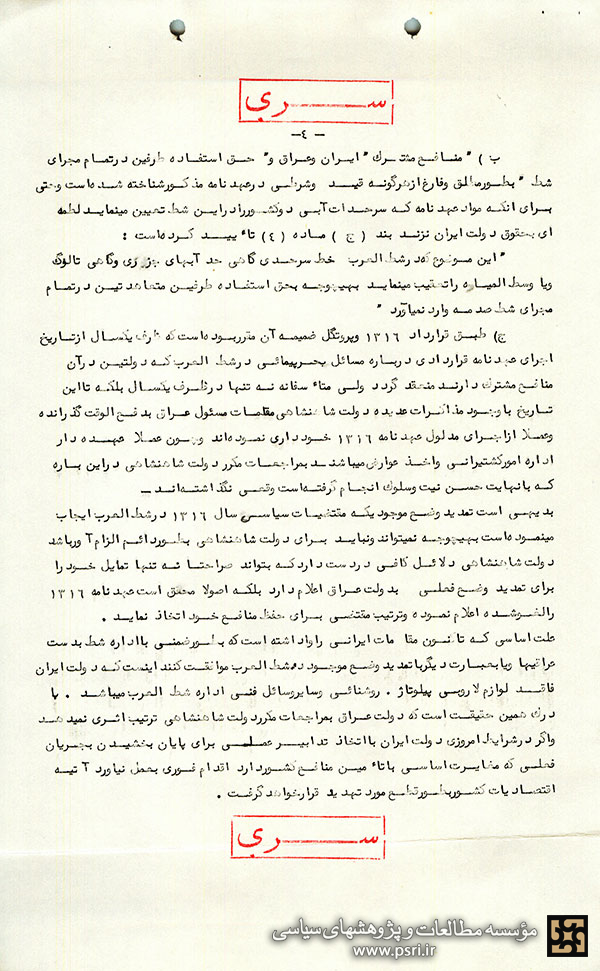 ســـــری
- ٤ -
ب ) " منافع مشترک " ایران وعراق و " حق استفاده طرفین درتمام مجرای
شط " بطورمطلق وفارغ ازهرگونه قید وشرطی درعهدنامه مذکورشناخته شده‌است وحتی
برای انکه موادعهدنامه که سرحدات آبی دوکشوررادراین شط تعیین مینماید لطمه
ای بحقوق دولت ایران نزند بند ( ج ) ماده (٤) تاٴیید کرده‌است :
" این موضوع که‌درشط العرب خط سرحدی گاهی حد آبهای جزری وگاهی تالوگ
ویا وسط المیاه راتعقیب مینماید بهیچوجه بحق استفاده طرفین متعاهدتین درتمام
مجرای شط صدمه وارد نمیآورد "
ج) طبق قرارداد ١٣١٦ وپروتکل ضمیمه آن مقرربوده‌است که ظرف یکسال ازتاریخ
اجرای عهدنامه قراردادی درباره مسائل بحرپیمائی درشط العرب که دولتین درآن
منافع مشترک دارند منعقد گردد ولی متاٴسفانه نه تنها درظرف یکسال بلکه تااین
تاریخ باوجود مذاکرات عدیده دولت شاهنشاهی مقامات مسئول عراق بدفع الوقت گذرانده
وعملا ازاجرای مدلول عهدنامه ١٣١٦ خودداری نموده‌اند وچون عملا عهده دار
اداره امورکشتیرانی واخذ عوارض میباشند بمراجعات مکرر دولت شاهنشاهی دراین باره
که بانهایت حسن نیت وسلوک انجام گرفته‌است وقعی نگذاشته‌اند ـ
بدیهی است تمدید وضع موجودیکه مقتضیات سیاسی سال ١٣١٦ درشط العرب ایجاب
مینموده‌است بهیچوجه نمیتواند ونباید برای دولت شاهنشاهی بطوردائم الزام آورباشد
دولت شاهنشاهی دلائل کافی دردست داردکه بتواند صراحتا نه تنها تمایل خود را
برای تمدید وضع فعلی بدولت عراق اعلام دارد بلکه اصولا محقق است عهدنامه ١٣١٦
رالغوشده اعلام نموده وترتیب مقتضی برای حفظ منافع خود اتخاذ نماید .
علت اساسی که تاکنون مقامات ایرانی راواداشته است‌که بطورضمنی بااداره شط بدست
عراقیها ویابعبارت دیگرباتمدید وضع موجود درشط العرب موافقت کنند اینست که دولت ایران
فاقد لوازم لاروبی پیلوتاژ . روشنائی وسایروسائل فنی اداره شط العرب میباشد . با
درک همین حقیقت است که دولت عراق بمراجعات مکرردولت شاهنشاهی ترتیب اثری نمیدهد
واگر درشرایط امروزی دولت ایران بااتخاذ تدابیر عملی برای پایان بخشیدن بجریان
فعلی که مغایرت اساسی باتاٴمین منافع کشوردارد اقدام فوری بعمل نیاورد آتیه
اقتصادیات کشوربطورقطع مورد تهدید قرارخواهدگرفت .
ســـــری
مؤسسه مطالعات و پژوهشهای سیاسی
www.psri.ir